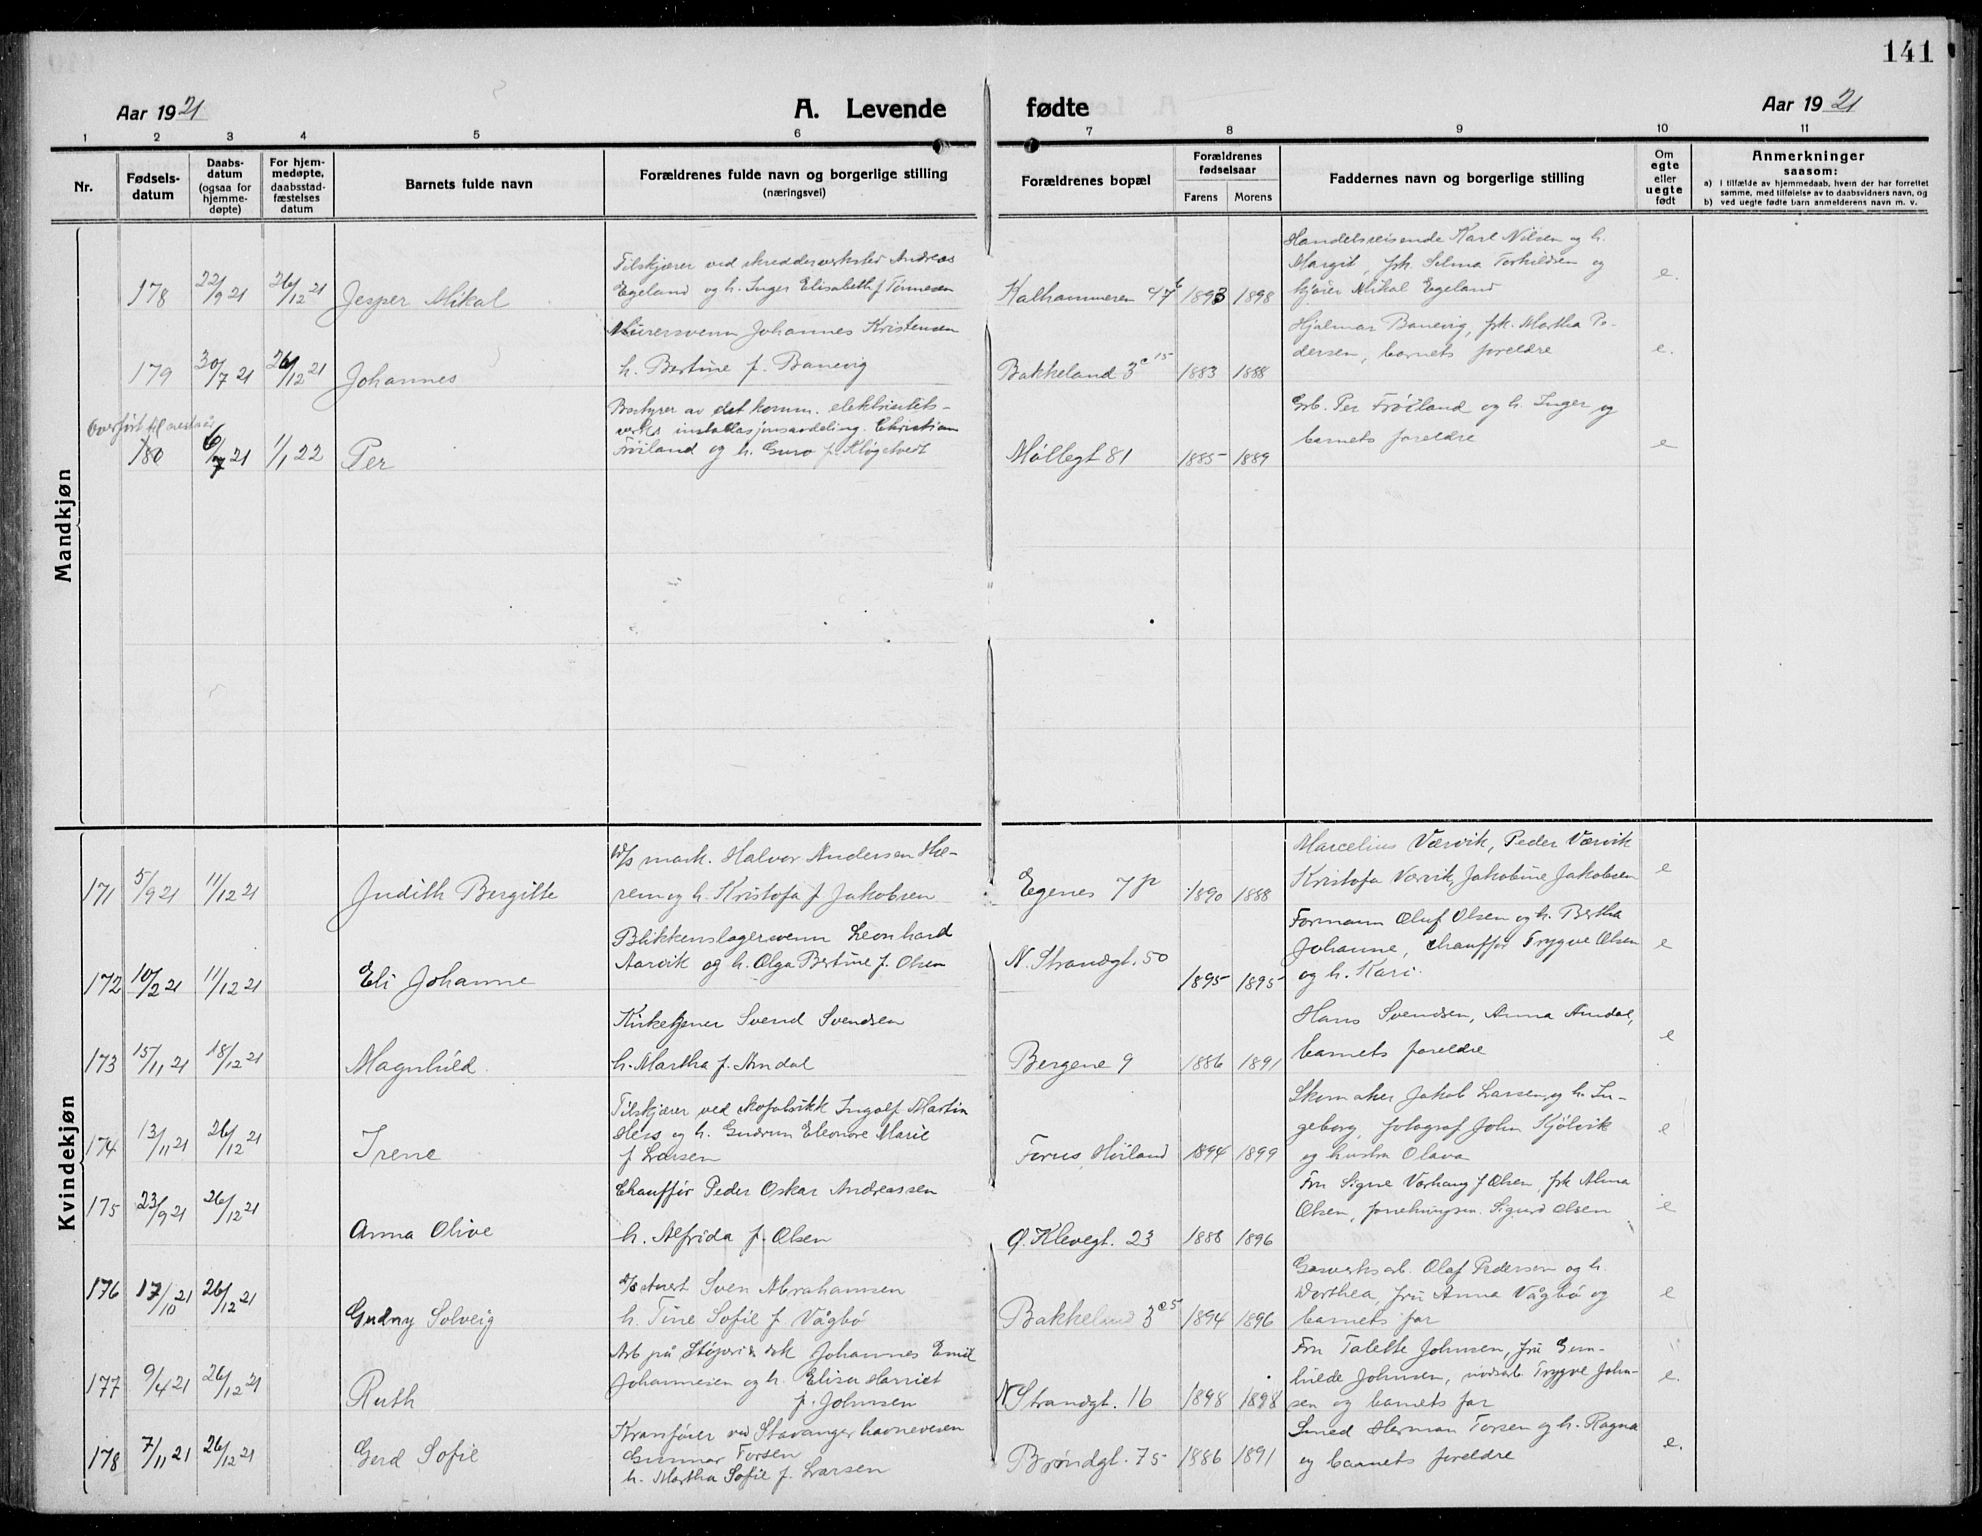 141
Aar 1921
A. Levende fødte
Aar 1921
1 2 3 4 5 6 7 8 9 10 11
Nr.
Fødsels-
datum
Daabs-
datum
(ogsaa for
hjemme-
døpte)
For hjem-
medøpte,
daabsstad-
fæstelses
datum
Barnets fulde navn
Forældrenes fulde navn og borgerlige stilling
(næringsvei)
Forældrenes bopæl
Forældrenes
fødselsaar
Farens Morens
Faddernes navn og borgerlige stilling
Om
egte
eller
uegte
født
Anmerkninger
saasom:
a) i tilfælde av hjemmedaab, hvem der har forrettet
samme, med tilføielse av to daabsvidners navn, og
b) ved uegte fødte barn anmelderens navn m. v.
Mandkjøn
178 22/9 21 26/12 21 Jesper Mikal
Tilskjærer ved skredderverksted Andreas
Egeland og h. Inger Elisabeth f. Tønnesen
Kalhammeren 47b 1893 1898
Handelsreisende Karl Nilsen og h.
Margit, frk. Selma Torkildsen og
kjører Mikal Egeland
e.
179 30/7 21 26/12 21 Johannes
Murersvenn Johannes Kristensen
h. Bertine f. Banevig
Bakkeland 3e 15 1883 1888
Hjalmar Banevig, frk. Martha Pe-
dersen, barnets foreldre
e.
Overført til næste år
180 6/7 21 1/1 22 Per
Bestyrer av det komm. elektrisitets-
verks installasjonsavdeling. Christian
Frøiland og h. Guro f.
Møllegt 81 1885 1889
Grb. Per Frøiland og h. Inger og
barnets foreldre
e
Kvindekjøn
171 5/9 21 11/12 21 Judith Bergitte
mark. Halvor Andersen Hæ-
rem og h. Kristofa f. Jakobsen
Egenes 7p 1890 1888
Marcelius Værvik, Peder Værvik
Kristofa Værvik, Jakobine Jakobsen
e
172 10/2 21 11/12 21 Eli Johanne
Blikkenslagersvenn Leonhard
Aarvik og h. Olga Bertine f. Olsen
N. Strandgt. 50 1895 1895
Formann Oluf Olsen og h. Bertha
Johanne, chauffør Trygve Olsen
og h. Kari.
e
173 15/11 21 18/12 21 Magnhild
Kirketjener Svend Svendsen
h. Martha f. Amdal
Bergene 9 1886 1891
Hans Svendsen, Anna Amdal,
barnets foreldre
e
174 13/11 21 26/12 21 Irene
Tilskjærer ved skofabrikk Ingolf Martin
Hess og h. Gudrun Eleonore Marie
f Larsen
Forus, Høiland 1894 1899
Skomaker Jakob Larsen, og h. In-
geborg, fotograf John Kjølvik
og hustru Olava
e
175 23/9 21 26/12 21 Anna Olive
Chauffør Peder Oskar Andreassen
h. Alfrida f. Olsen
Ø. Klevegt. 23 1888 1896
Fru Signe Varhaug f Olsen, frk Alma
Olsen, Sigurd Olsen
e
176 17/10 21 26/12 21 Gudny Solveig
Sven Abrahamsen
h. Tine Sofie f Vågbø
Bakkeland 3e5 1894 1896
Gasverksarb. Olaf Pedersen og h.
Dorthea, fru Anna Vågbø og
barnets far
e
177 9/4 21 26/12 21 Ruth
Arb på Johannes Emil
Johannesen og h. Elisa Harriet
f. Johnsen
N Strandgt. 16 1898 1898
Fru Talette Johnsen, fru Gun-
hilde Johnsen, Trygve John-
sen og barnets far
e.
178 7/11 21 26/12 21 Gerd Sofie
Kranfører ved Stavanger havnevesen
Gunnar Torsen
h. Martha Sofie f. Larsen
Brøndgt. 75 1886 1891
Smed Herman Torsen og h. Ragna
og barnets foreldre
e.